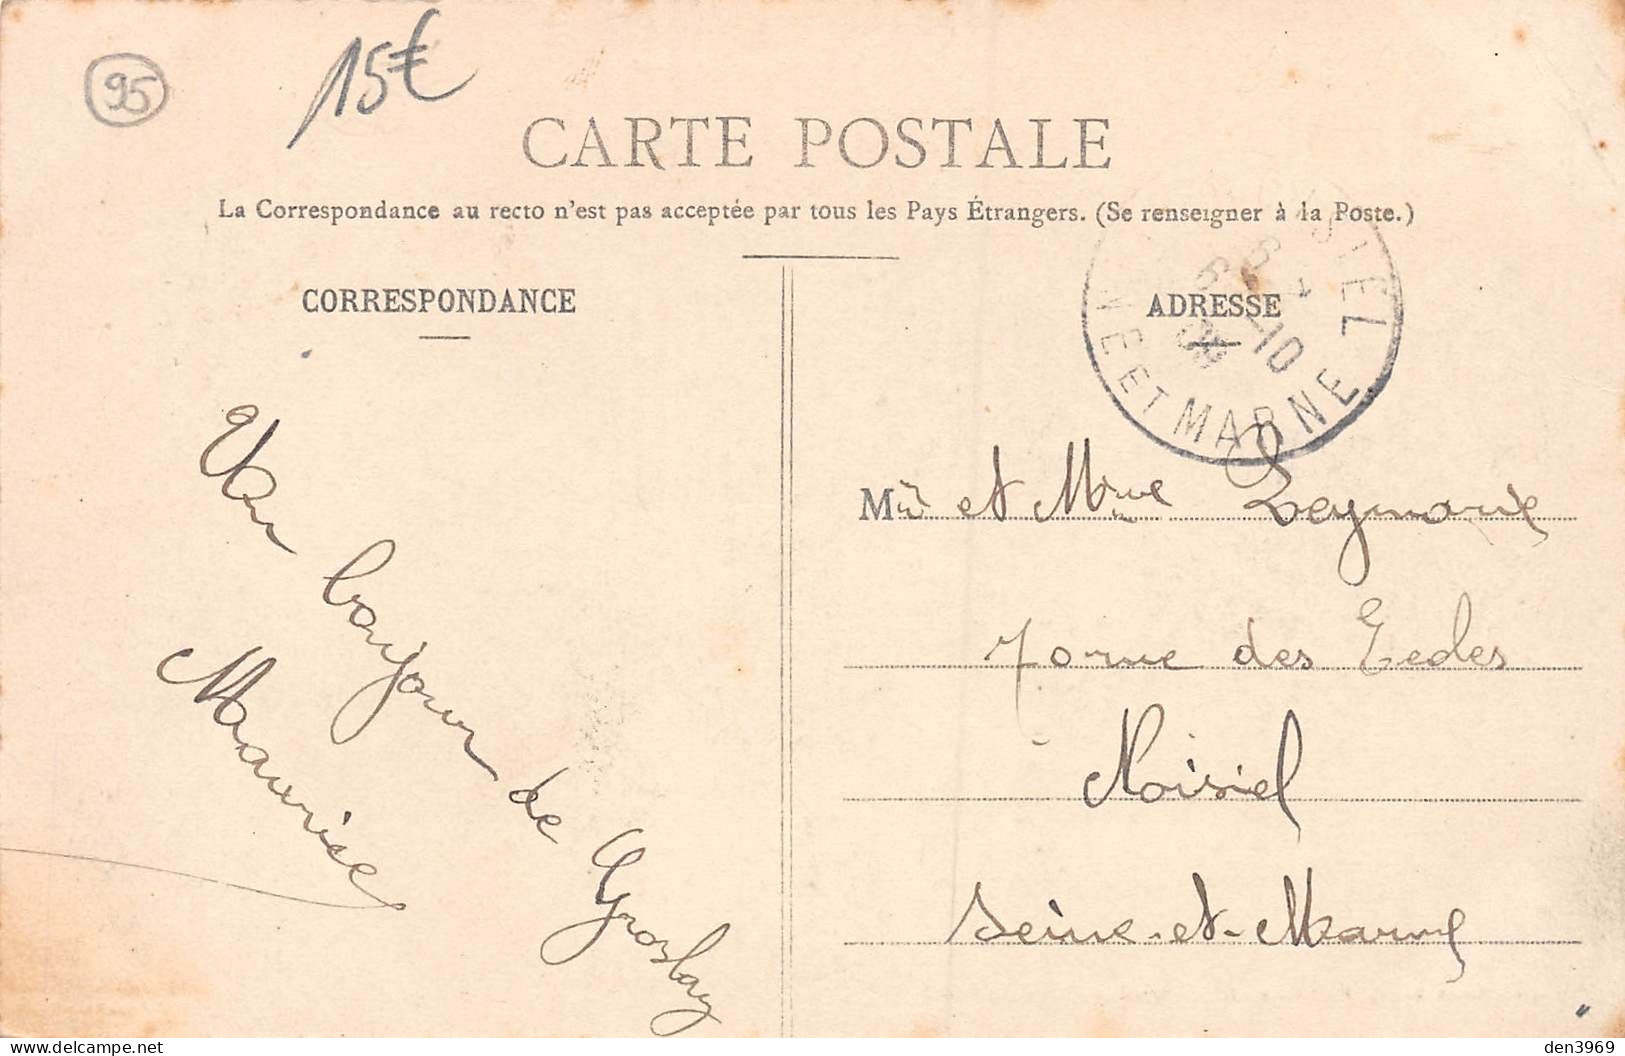 95
15€
CARTE POSTALE
La Correspondance au recto n'est pas acceptée par tous les Pays Étrangers. (Se renseigner à la Poste.)
CORRESPONDANCE
ADRESSE
NE ET MARNE
Un bonjour de Groslay
Maurice
Mr et Mme Leymarie
70 rue des Ecoles
Noisiel
Seine-et-Marne
den3969